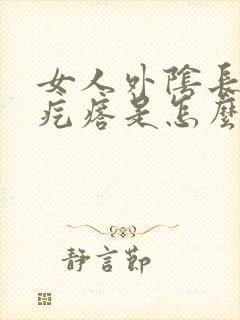 女人外陰長
疙瘩是怎麼
静言节